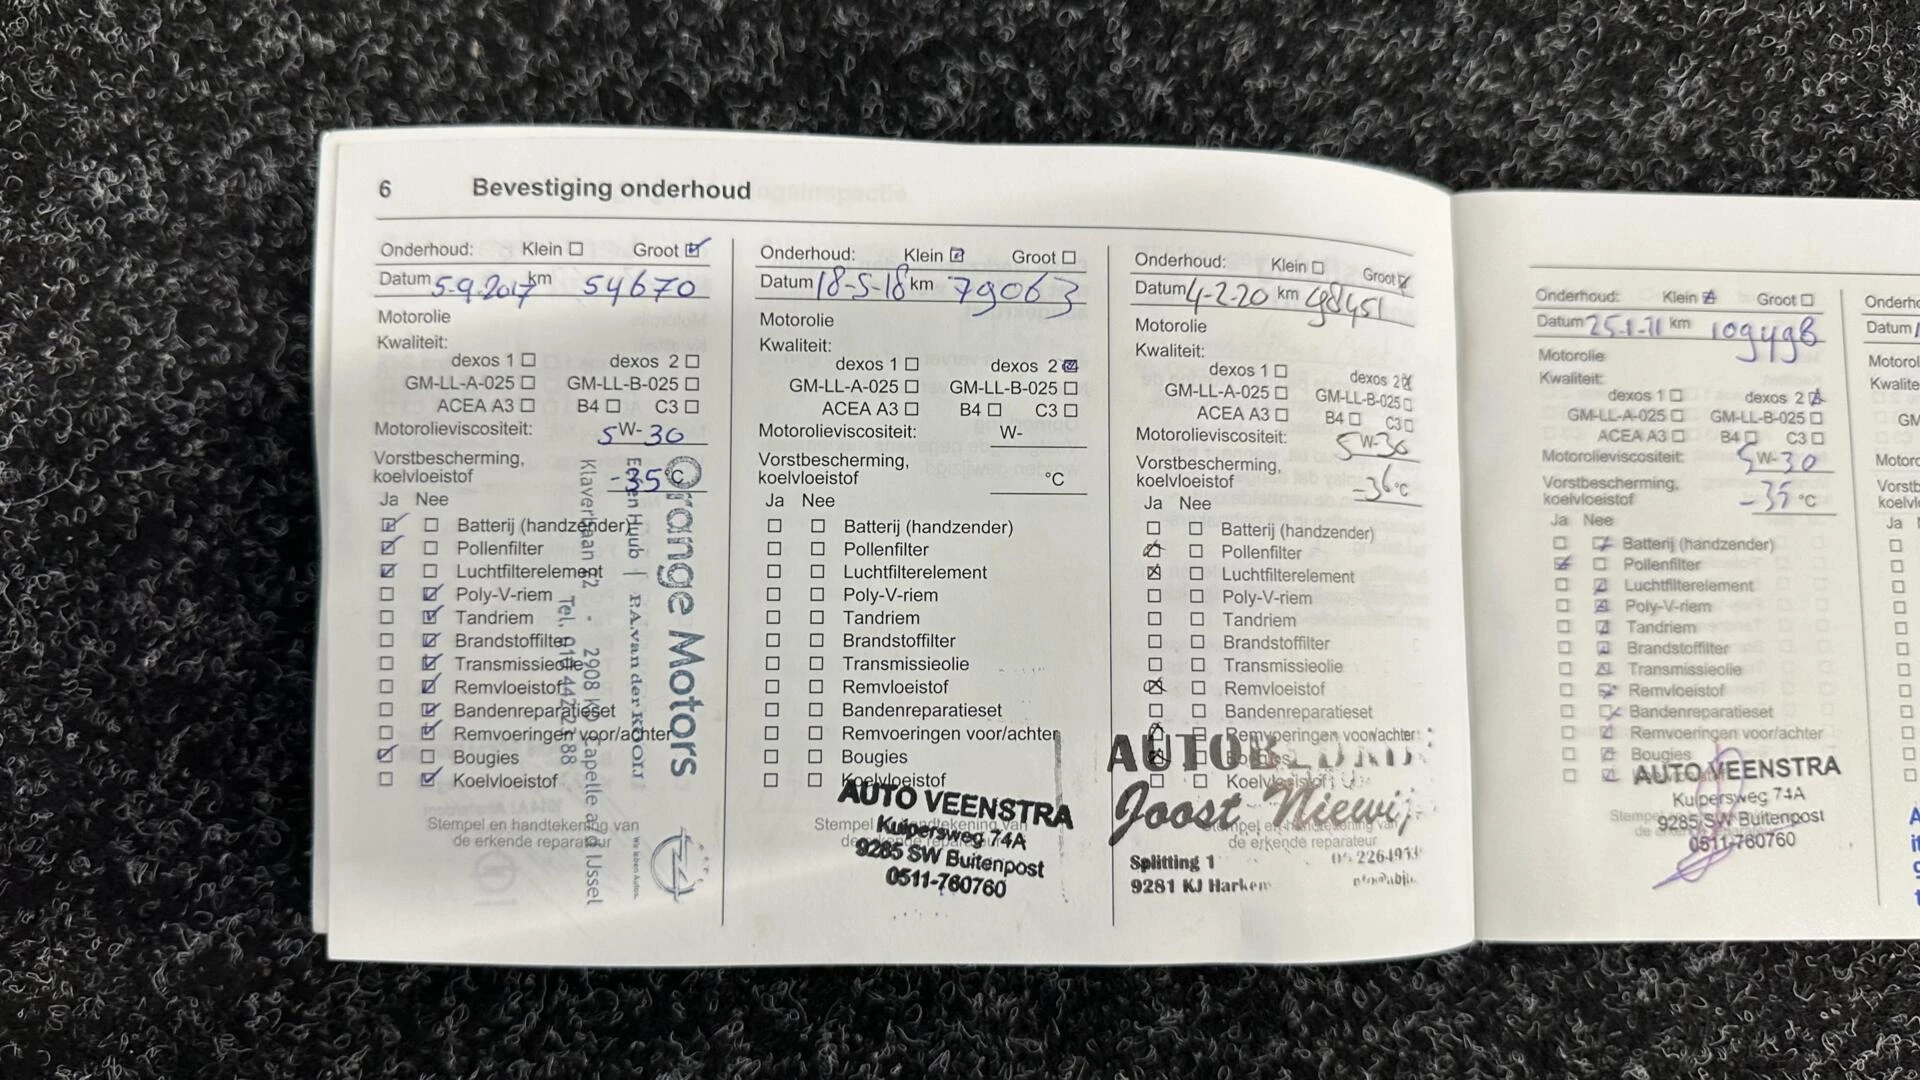 6 Bevestiging onderhoud
Onderhoud: Klein Groot
Datum 5-9-2017 km 54670
Motorolie
Kwaliteit:
dexos 1 dexos 2
GM-LL-A-025 GM-LL-B-025
ACEA A3 B4 C3
Motorolieviscositeit: 5W-30
Vorstbescherming,
koelvloeistof -35°C
Ja Nee
Batterij (handzender)
Pollenfilter
Luchtfilterelement
Poly-V-riem
Tandriem
Brandstoffilter
Transmissieolie
Remvloeistof
Bandenreparatieset
Remvoeringen voor/achter
Bougies
Koelvloeistof
Stempel en handtekening van
de erkende reparateur
Orange Motors
P.A. van der KOOIJ
Wir leben Autos.
Onderhoud: Klein Groot
Datum 18-5-18 km 79063
Motorolie
Kwaliteit:
dexos 1 dexos 2
GM-LL-A-025 GM-LL-B-025
ACEA A3 B4 C3
Motorolieviscositeit: W-
Vorstbescherming,
koelvloeistof °C
Ja Nee
Batterij (handzender)
Pollenfilter
Luchtfilterelement
Poly-V-riem
Tandriem
Brandstoffilter
Transmissieolie
Remvloeistof
Bandenreparatieset
Remvoeringen voor/achter
Bougies
Koelvloeistof
Stempel en handtekening van
AUTO VEENSTRA
Kuipersweg 74A
9285 SW Buitenpost
0511-760760
Onderhoud: Klein Groot
Datum 4-2-20 km 98451
Motorolie
Kwaliteit:
dexos 1 dexos 2
GM-LL-A-025 GM-LL-B-025
ACEA A3 B4 C3
Motorolieviscositeit: 5W-30
Vorstbescherming,
koelvloeistof -36°C
Ja Nee
Batterij (handzender)
Pollenfilter
Luchtfilterelement
Poly-V-riem
Tandriem
Brandstoffilter
Transmissieolie
Remvloeistof
Bandenreparatieset
Remvoeringen voor/achter
Bougies
Koelvloeistof
Joost
Stempel en handtekening van
de erkende reparateur
Splitting 1
9281 KJ
Onderhoud: Klein Groot
Datum km 109498
Motorolie
Kwaliteit:
dexos 1 dexos 2
GM-LL-A-025 GM-LL-B-025
ACEA A3 B4 C3
Motorolieviscositeit: 5W-30
Vorstbescherming,
koelvloeistof -35°C
Ja Nee
Batterij (handzender)
Pollenfilter
Luchtfilterelement
Poly-V-riem
Tandriem
Brandstoffilter
Transmissieolie
Remvloeistof
Bandenreparatieset
Remvoeringen voor/achter
Bougies
AUTO VEENSTRA
Kuipersweg 74A
9285 SW Buitenpost
0511-760760
Datum
Ja